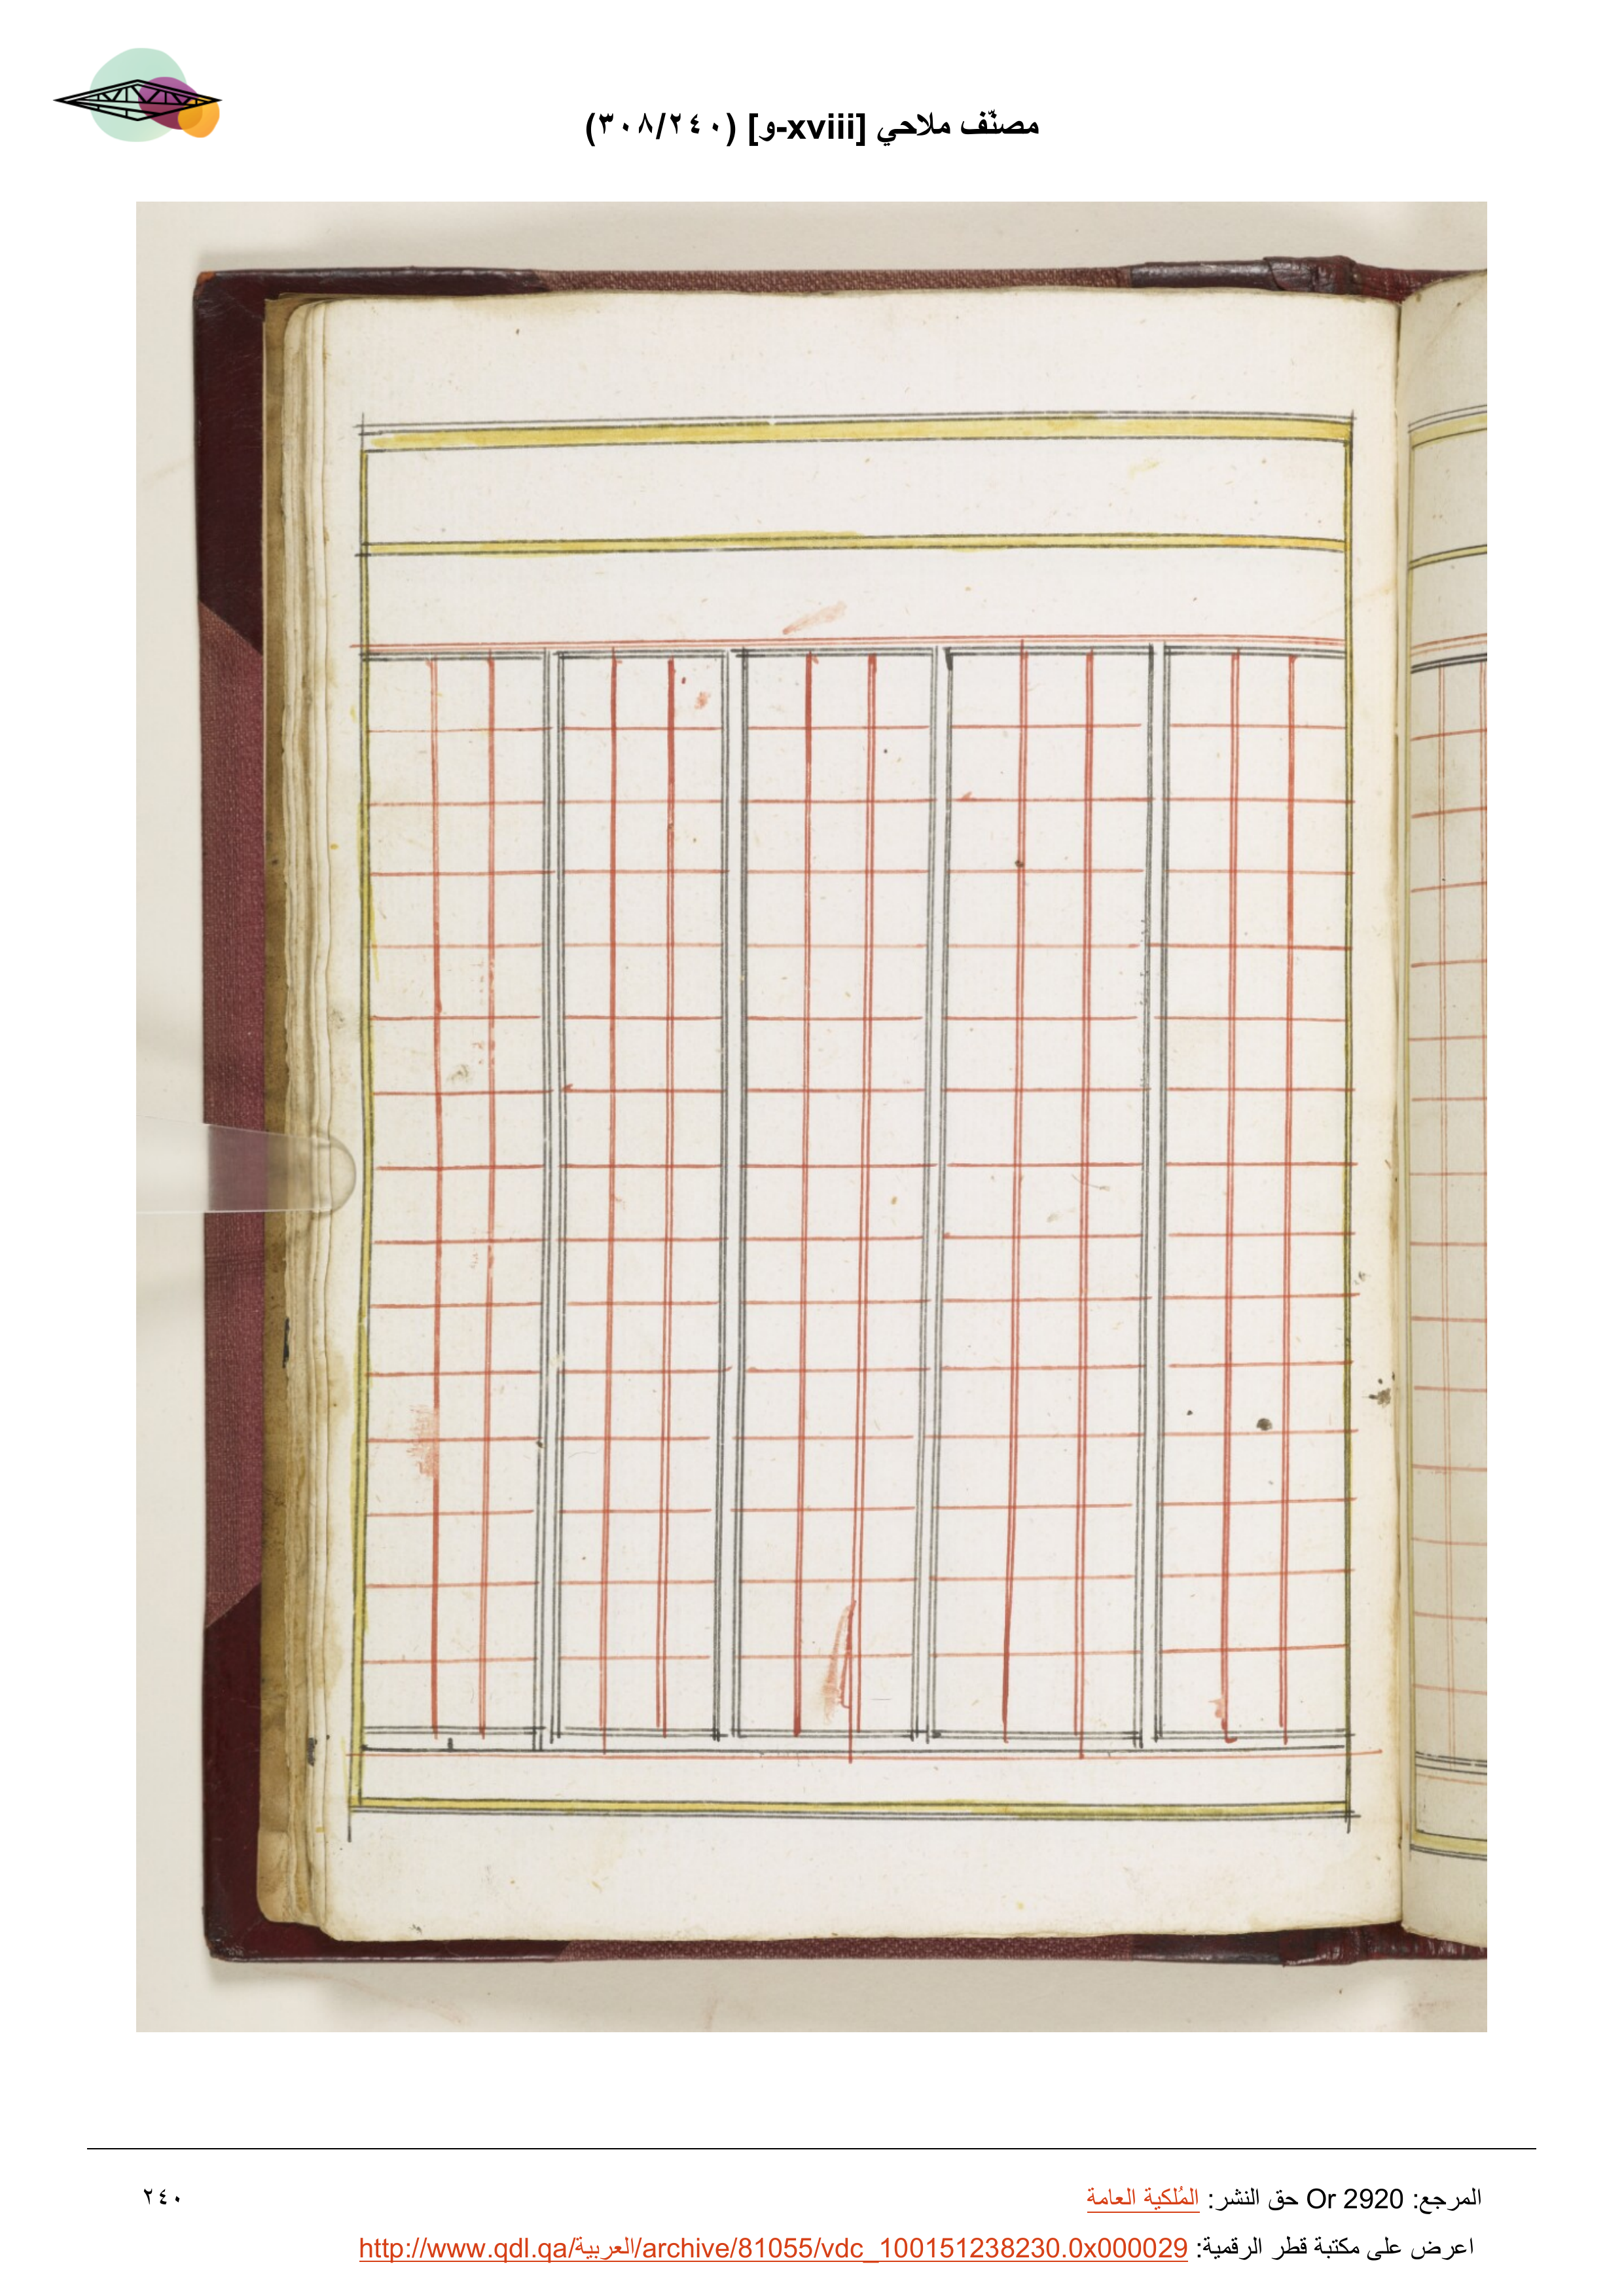 مصنّف ملاحي [xviii-و] (٢٤٠/٣٠٨)
المرجع: Or 2920 حق النشر: المُلكية العامة
٢٤٠
اعرض على مكتبة قطر الرقمية: http://www.qdl.qa/العربية/archive/81055/vdc_100151238230.0x000029